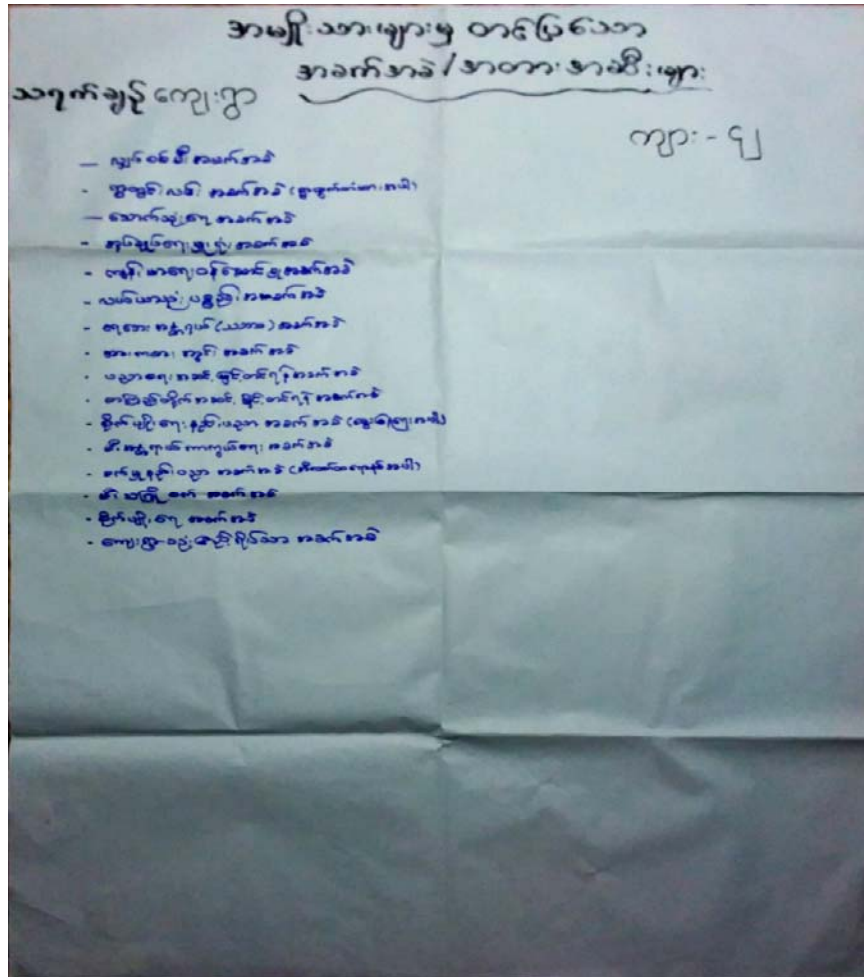 အမျိုးသားများမှ တင်ပြသော
အခက်အခဲ / အတားအဆီးများ
သရက်ချဉ် ကျေးရွာ
ကျား - ၄၂
— လျှပ်စစ်မီး အခက်အခဲ
- လမ်း အခက်အခဲ
— သောက်သုံးရေ အခက်အခဲ
- အုပ်ချုပ်ရေးမှူးရုံး အခက်အခဲ
- ကျန်းမာရေး ဝန်ဆောင်မှု အခက်အခဲ
- လယ်ယာသုံး ပစ္စည်း အခက်အခဲ
- ရေဘေး အန္တရာယ် အခက်အခဲ
- အားကစား ကွင်း အခက်အခဲ
- ပညာရေး အဆင့်မြှင့်တင်ရန် အခက်အခဲ
- စာကြည့်တိုက် အဆင့်မြှင့်တင်ရန် အခက်အခဲ
- စိုက်ပျိုးရေး နည်းပညာ အခက်အခဲ
- မီးအန္တရာယ် ကာကွယ်ရေး အခက်အခဲ
- စက်မှုနည်းပညာ အခက်အခဲ
- အခက်အခဲ
- စိုက်ပျိုးရေ အခက်အခဲ
- ကျေးရွာ ဧည့်ရိပ်သာ အခက်အခဲ